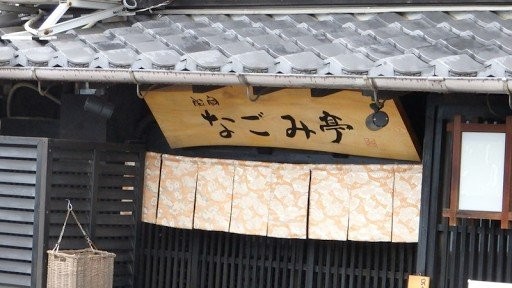 なごみ亭